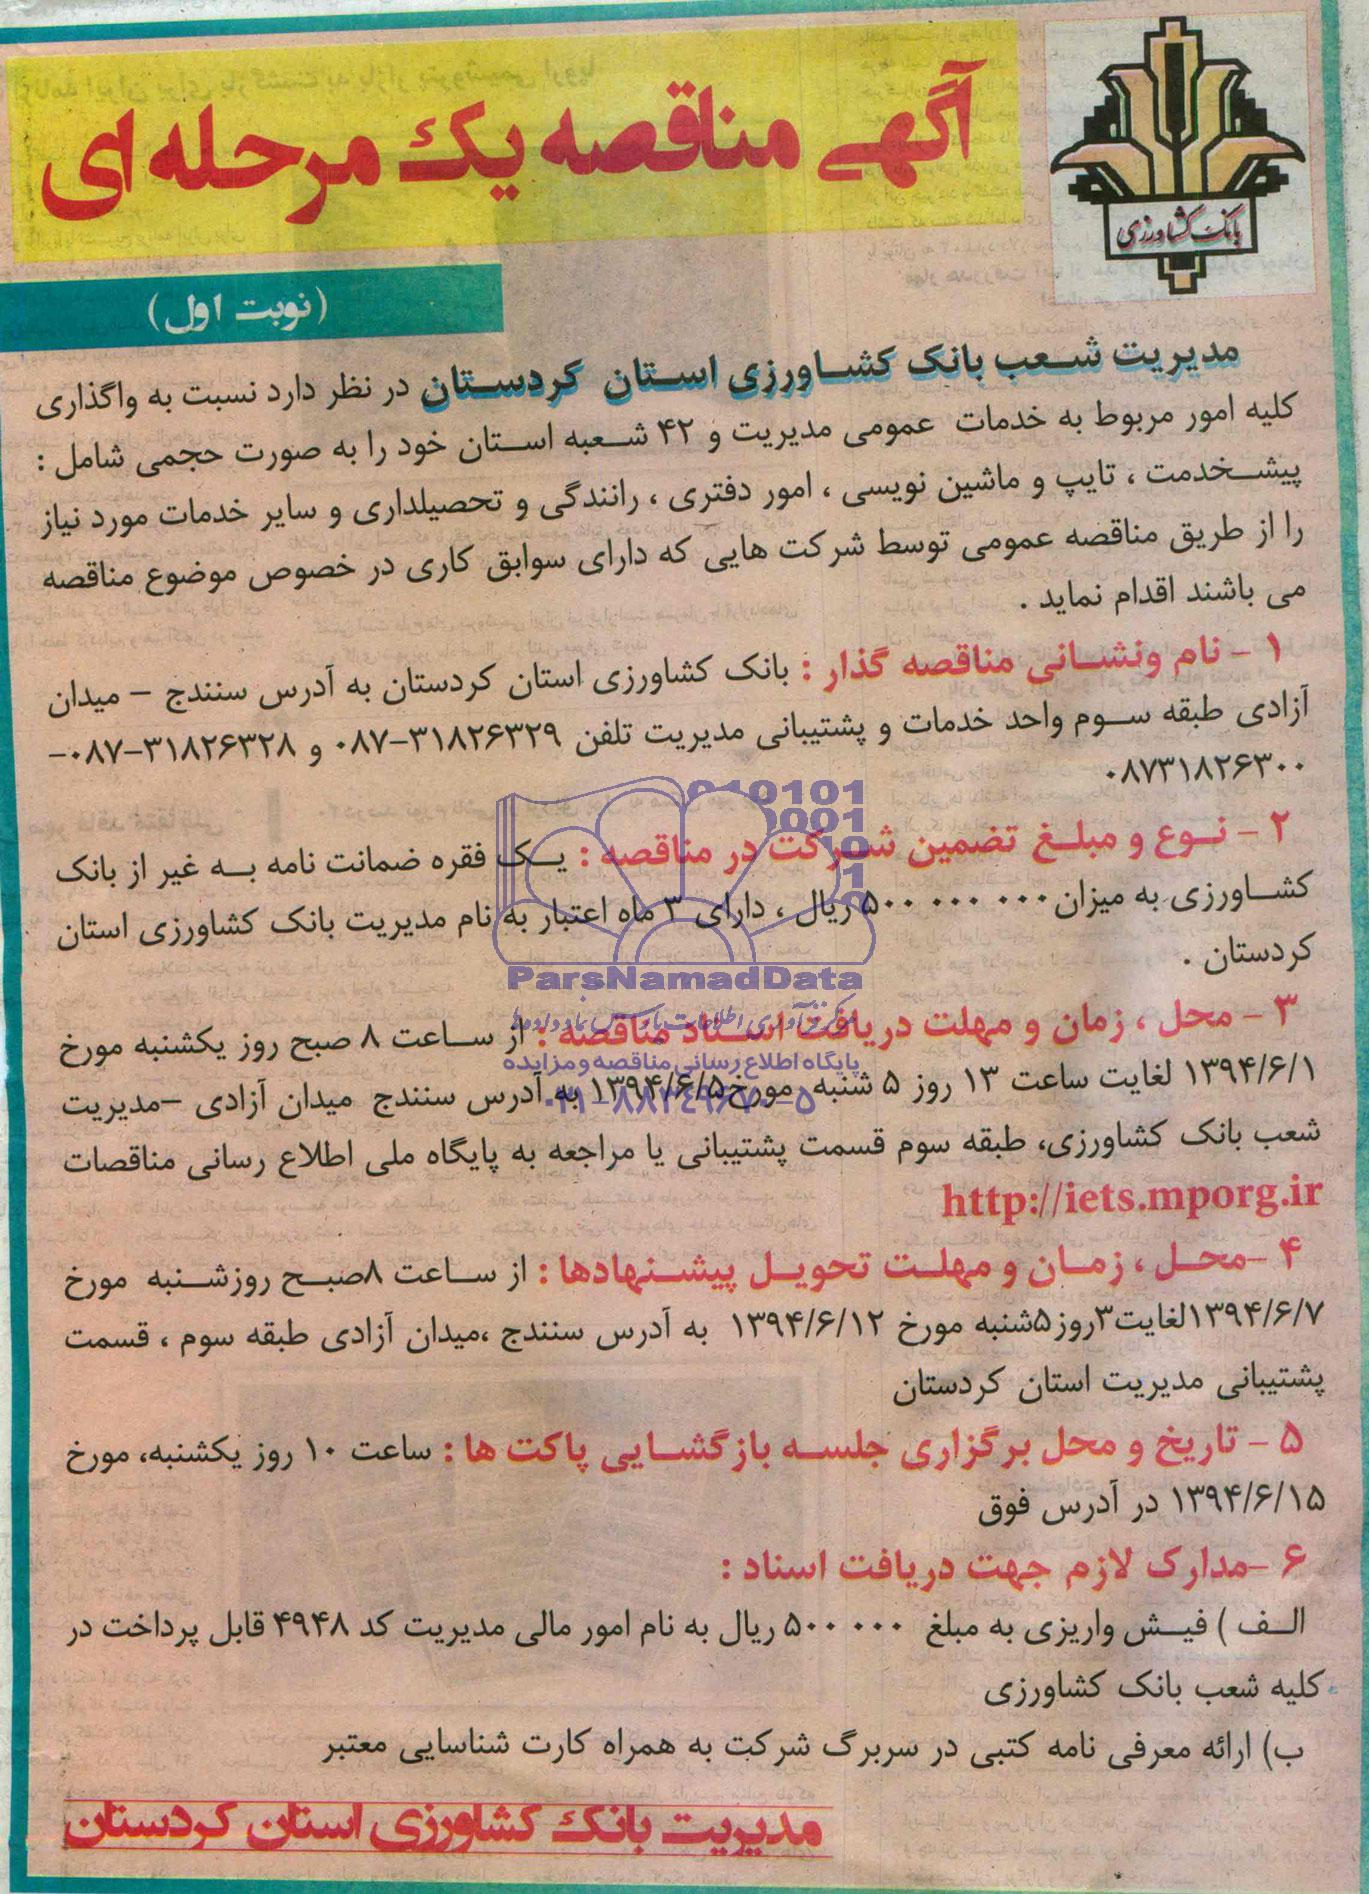 بانک کشاورزی
آگهی مناقصه یک مرحله ای
(نوبت اول)
مدیریت شعب بانک کشاورزی استان کردستان در نظر دارد نسبت به واگذاری
کلیه امور مربوط به خدمات عمومی مدیریت و ۴۲ شعبه استان خود را به صورت حجمی شامل :
پیشخدمت ، تایپ و ماشین نویسی ، امور دفتری ، رانندگی و تحصیلداری و سایر خدمات مورد نیاز
را از طریق مناقصه عمومی توسط شرکت هایی که دارای سوابق کاری در خصوص موضوع مناقصه
می باشند اقدام نماید .
۱ - نام ونشانی مناقصه گذار : بانک کشاورزی استان کردستان به آدرس سنندج – میدان
آزادی طبقه سوم واحد خدمات و پشتیبانی مدیریت تلفن ۳۱۸۲۶۳۲۹-۰۸۷ و ۳۱۸۲۶۳۲۸-۰۸۷-
۰۸۷۳۱۸۲۶۳۰۰
۲ - نوع و مبلغ تضمین شرکت در مناقصه : یک فقره ضمانت نامه به غیر از بانک
کشاورزی به میزان ۵۰۰ ۰۰۰ ۰۰۰ ریال ، دارای ۳ ماه اعتبار به نام مدیریت بانک کشاورزی استان
کردستان .
۳ - محل ، زمان و مهلت دریافت اسناد مناقصه : از ساعت ۸ صبح روز یکشنبه مورخ
۱۳۹۴/۶/۱ لغایت ساعت ۱۳ روز ۵ شنبه مورخ ۱۳۹۴/۶/۵ به آدرس سنندج میدان آزادی –مدیریت
شعب بانک کشاورزی، طبقه سوم قسمت پشتیبانی یا مراجعه به پایگاه ملی اطلاع رسانی مناقصات
http://iets.mporg.ir
۴ -محل ، زمان و مهلت تحویل پیشنهادها : از ساعت ۸صبح روزشنبه مورخ
۱۳۹۴/۶/۷لغایت۳روز۵شنبه مورخ ۱۳۹۴/۶/۱۲ به آدرس سنندج ،میدان آزادی طبقه سوم ، قسمت
پشتیبانی مدیریت استان کردستان
۵ - تاریخ و محل برگزاری جلسه بازگشایی پاکت ها : ساعت ۱۰ روز یکشنبه، مورخ
۱۳۹۴/۶/۱۵ در آدرس فوق
۶ -مدارک لازم جهت دریافت اسناد :
الف ) فیش واریزی به مبلغ ۵۰۰ ۰۰۰ ریال به نام امور مالی مدیریت کد ۴۹۴۸ قابل پرداخت در
کلیه شعب بانک کشاورزی
ب) ارائه معرفی نامه کتبی در سربرگ شرکت به همراه کارت شناسایی معتبر
مدیریت بانک کشاورزی استان کردستان
ParsNamadData
پایگاه اطلاع رسانی مناقصه و مزایده